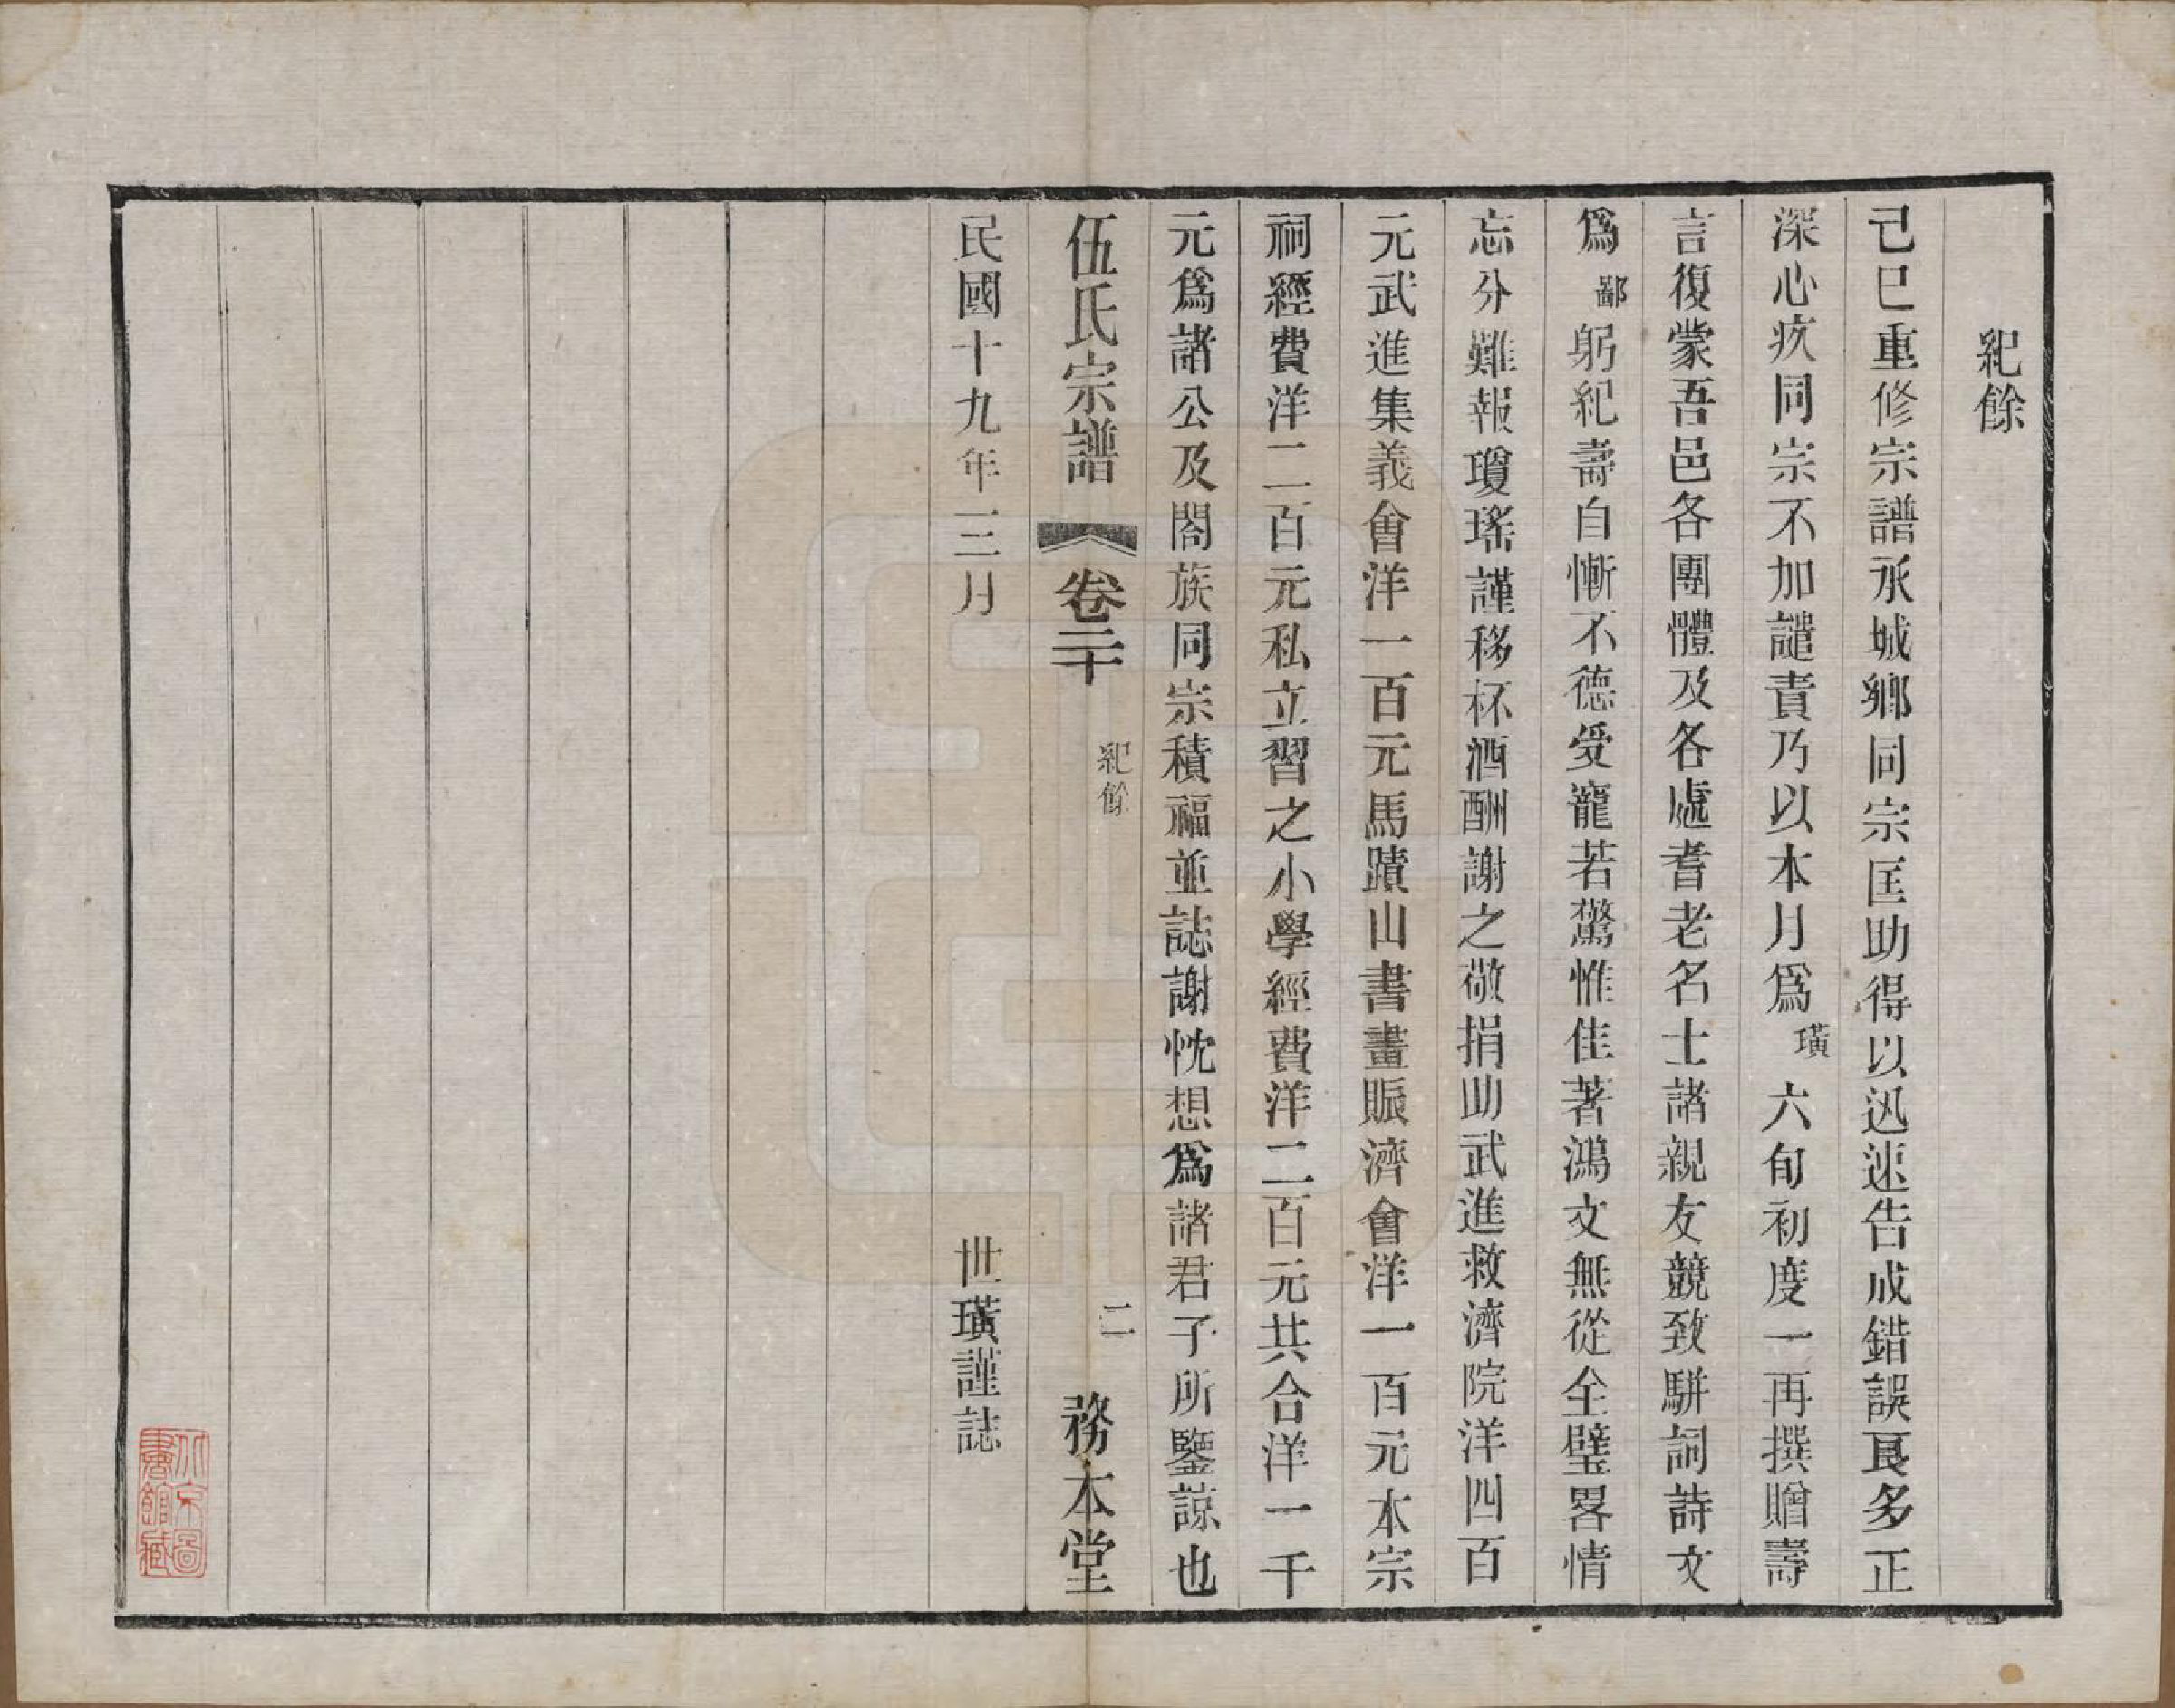 紀餘
己巳重修宗譜承城鄉同宗匡助得以迅速告成錯誤良多正
深心疚同宗不加譴責乃以本月爲璜六旬初度一再撰贈壽
言復蒙吾邑各團體及各處耆老名士諸親友競致駢詞詩文
爲鄙躬紀壽自慚不德受寵若驚惟佳著鴻文無從全璧畧情
忘分難報瓊瑤謹移杯酒酬謝之敬捐助武進救濟院洋四百
元武進集義會洋一百元馬蹟山書畫賑濟會洋一百元本宗
祠經費洋二百元私立習之小學經費洋二百元共合洋一千
元爲諸公及閤族同宗積福並誌謝忱想爲諸君子所鑒諒也
伍氏宗譜 卷二十 紀餘 二 務本堂
民國十九年三月 世璜謹誌
北京圖書館藏